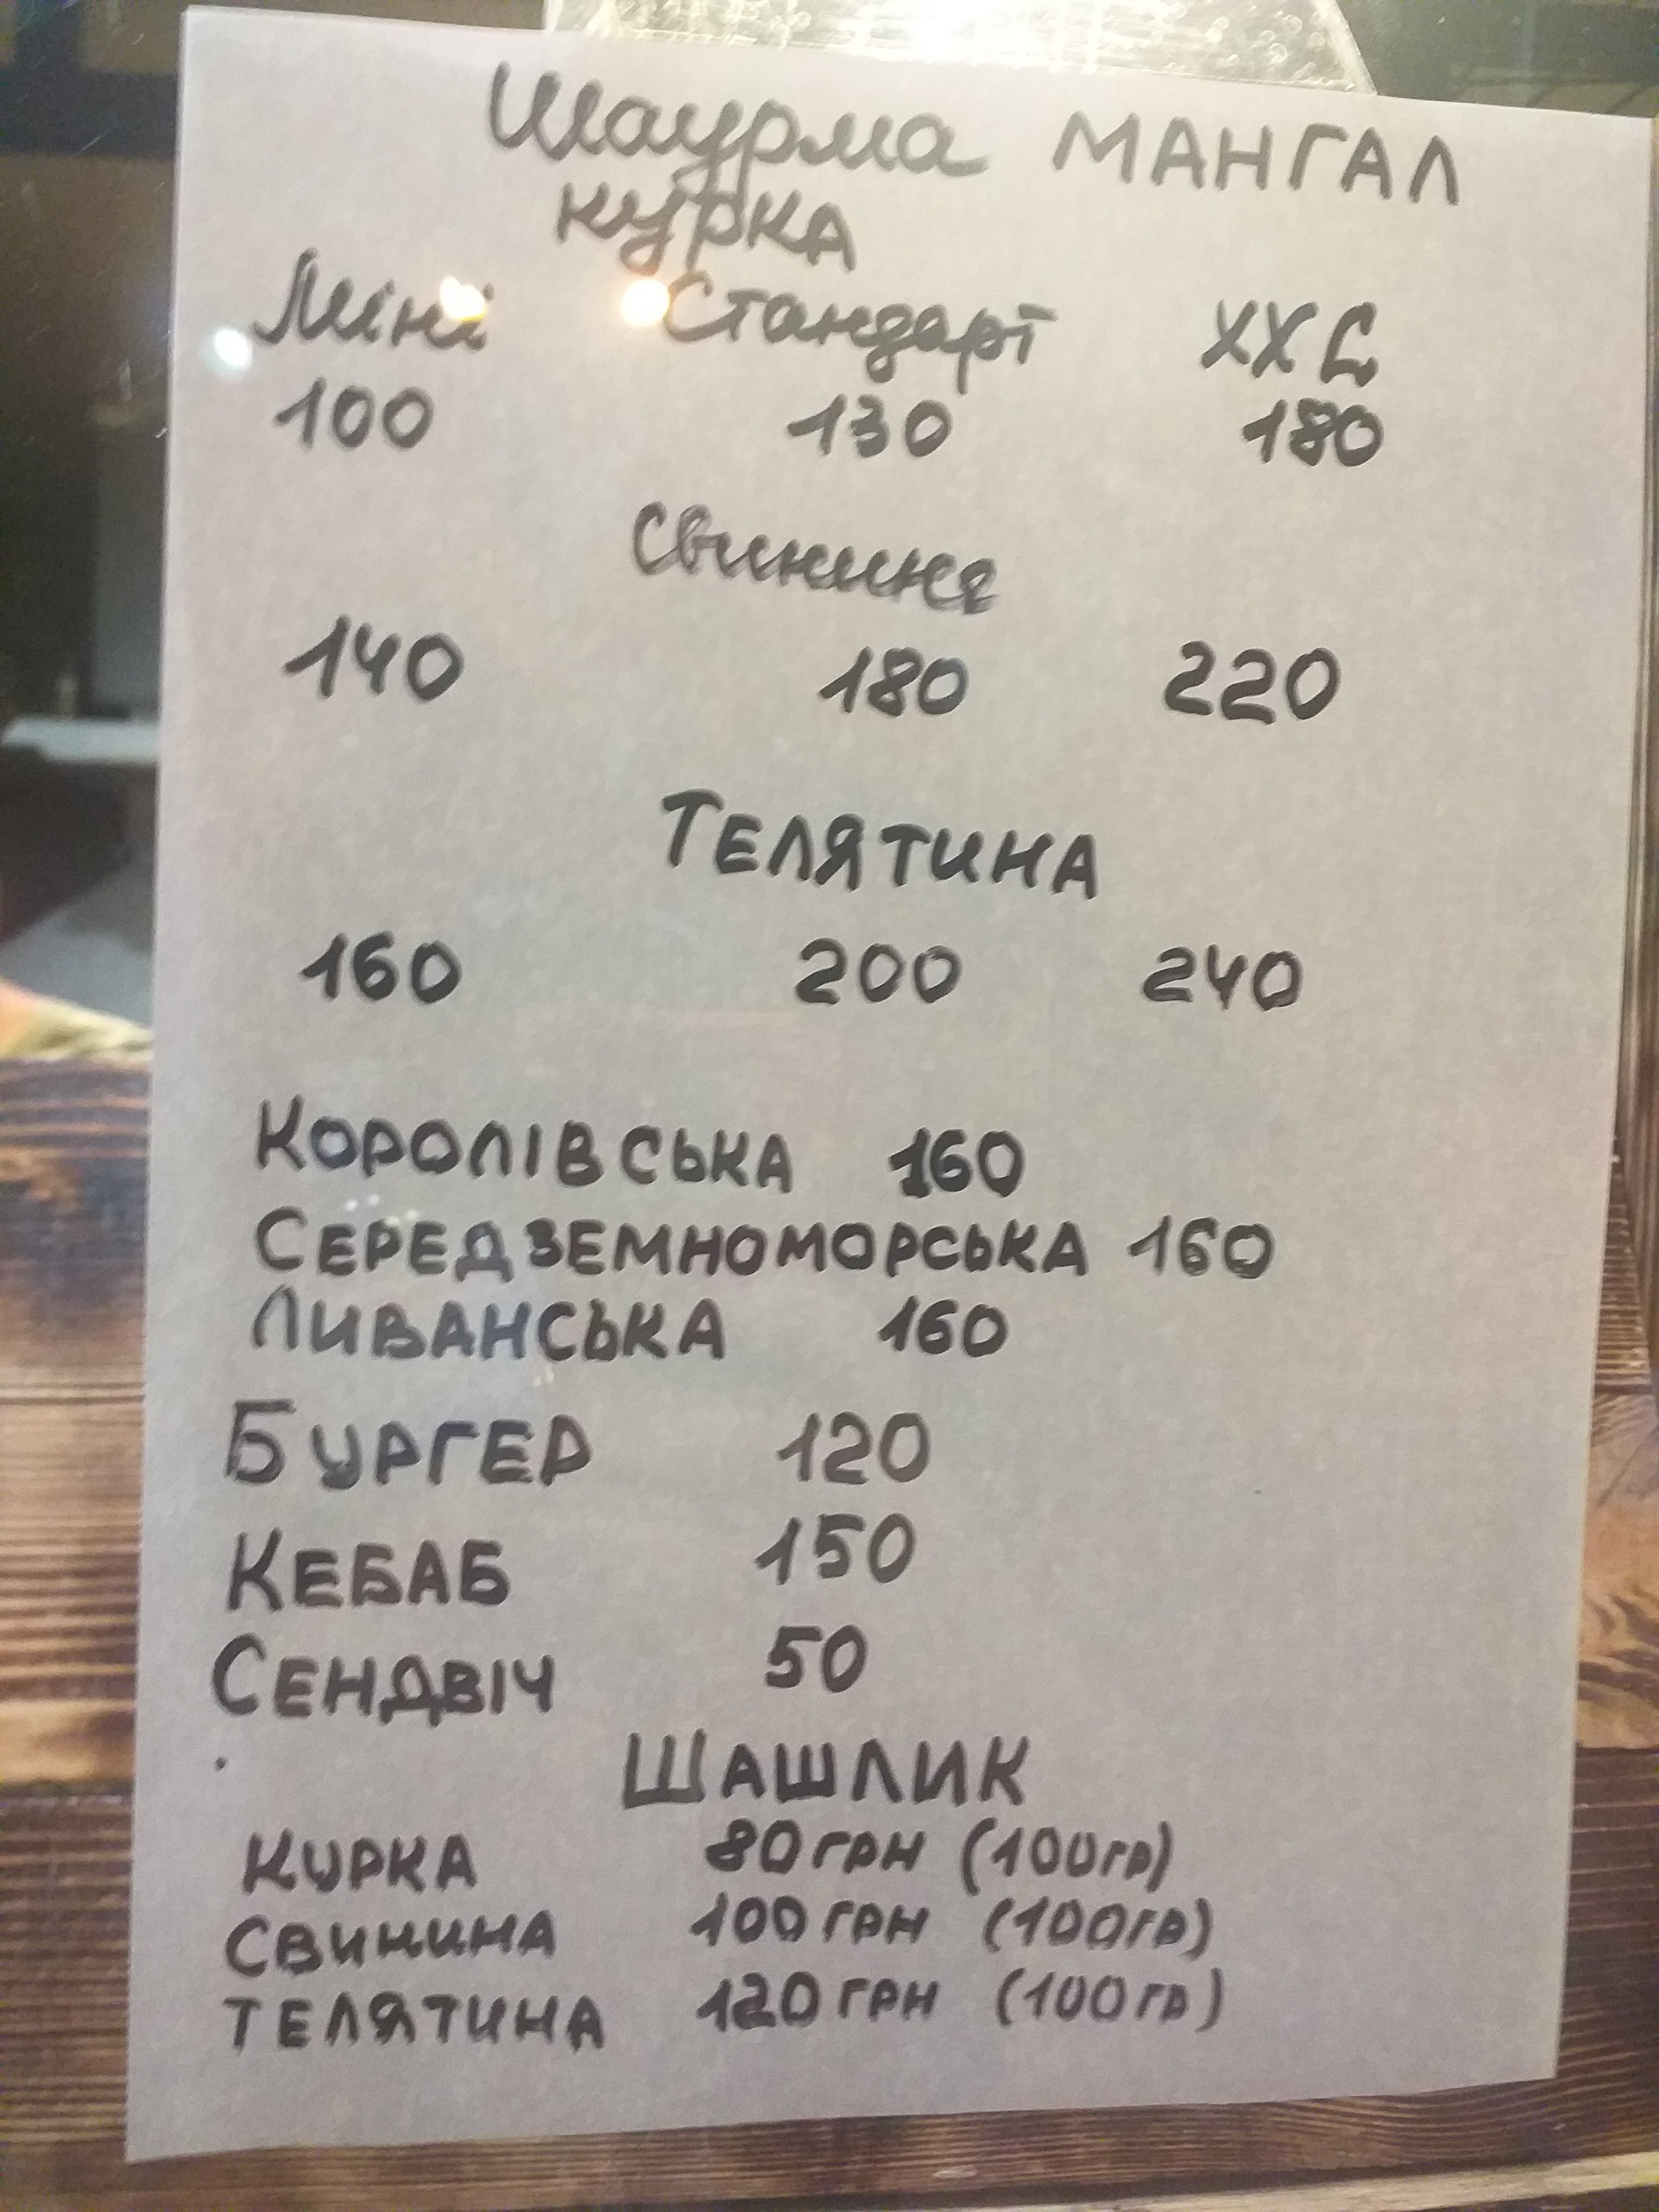 Шаурма МАНГАЛ
КУРКА
Міні Стандарт XXL
100 130 180
Свинина
140 180 220
ТЕЛЯТИНА
160 200 240
КОРОЛІВСЬКА 160
СЕРЕДЗЕМНОМОРСЬКА 160
ЛИВАНСЬКА 160
БУРГЕР 120
КЕБАБ 150
СЕНДВІЧ 50
ШАШЛИК
КУРКА 80 ГРН (100 ГР)
СВИНИНА 100 ГРН (100 ГР)
ТЕЛЯТИНА 120 ГРН (100 ГР)